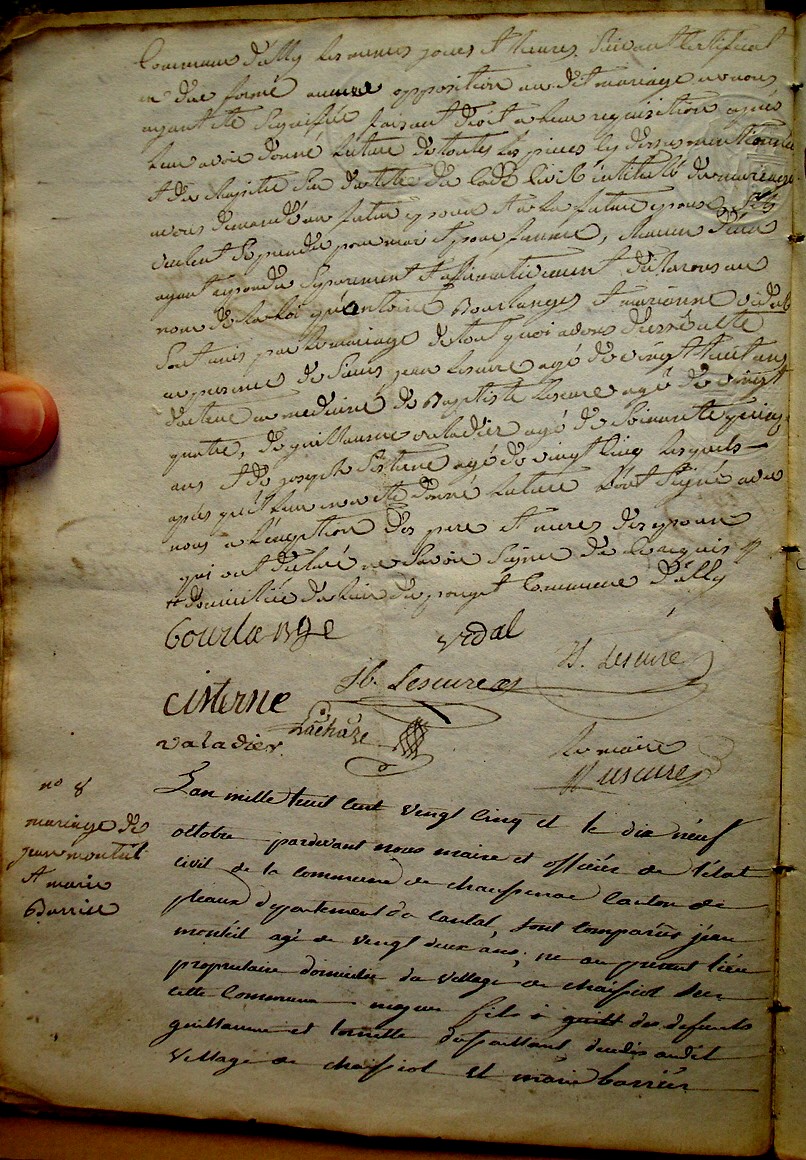 Commune d'ally les memes jours et heures. Suivant Certificat
aucune opposition au dit mariage ne nous
ayant été Signifiée faisant droit a leur requisition apres
leur avoir donné lecture de toutes les pieces cy dessus mentionnées
et du chapitre Six du titre du Code Civil intitullé du mariage
avons demandé au futur epoux et a la future epouse S'ils
veulent Se prendre pour mari et pour femme, chacun d'eux
ayant repondu Separement et affirmativement declarons au
nom de la loi qu'antoine Bourlanges et marianne vidal
Sont unis par le mariage de tout quoi avons dressé acte
en presence de Sieurs jean lescure agé de vingt huit ans
docteur en medecine de Baptiste lescure agé de vingt
quatre, de guillaume valadier agé de Soixante cinq
ans et de joseph Cisterne agé de vingt cinq lesquels
apres qu'il leur en a été donné lecture l'ont Signé avec
nous a l'exception des pere et meres des epoux
qui ont declaré ne Savoir Signer de ce requis #
# domiciliée du lieu du pouget Commune d'ally
Bourlange vidal
J. Lescure
cisterne Jb. Lescure
Lachaze
valadier.
le maire
Lescure
n° 8
mariage de
jean monteil
et marie
Barrier
L'an mille huit cent vingt cinq et le dix neuf
octobre pardevant nous maire et officier de l'état
civil de la commune de chaussenac canton de
pleaux département du cantal, sont comparus jean
monteil agé de vingt deux ans, né au présent lieu
propriétaire domicilié du village de chaissiol
cette Commune majeur fils à des defunts
guillaume et décédés audit
village de chaissiol et marie barrier